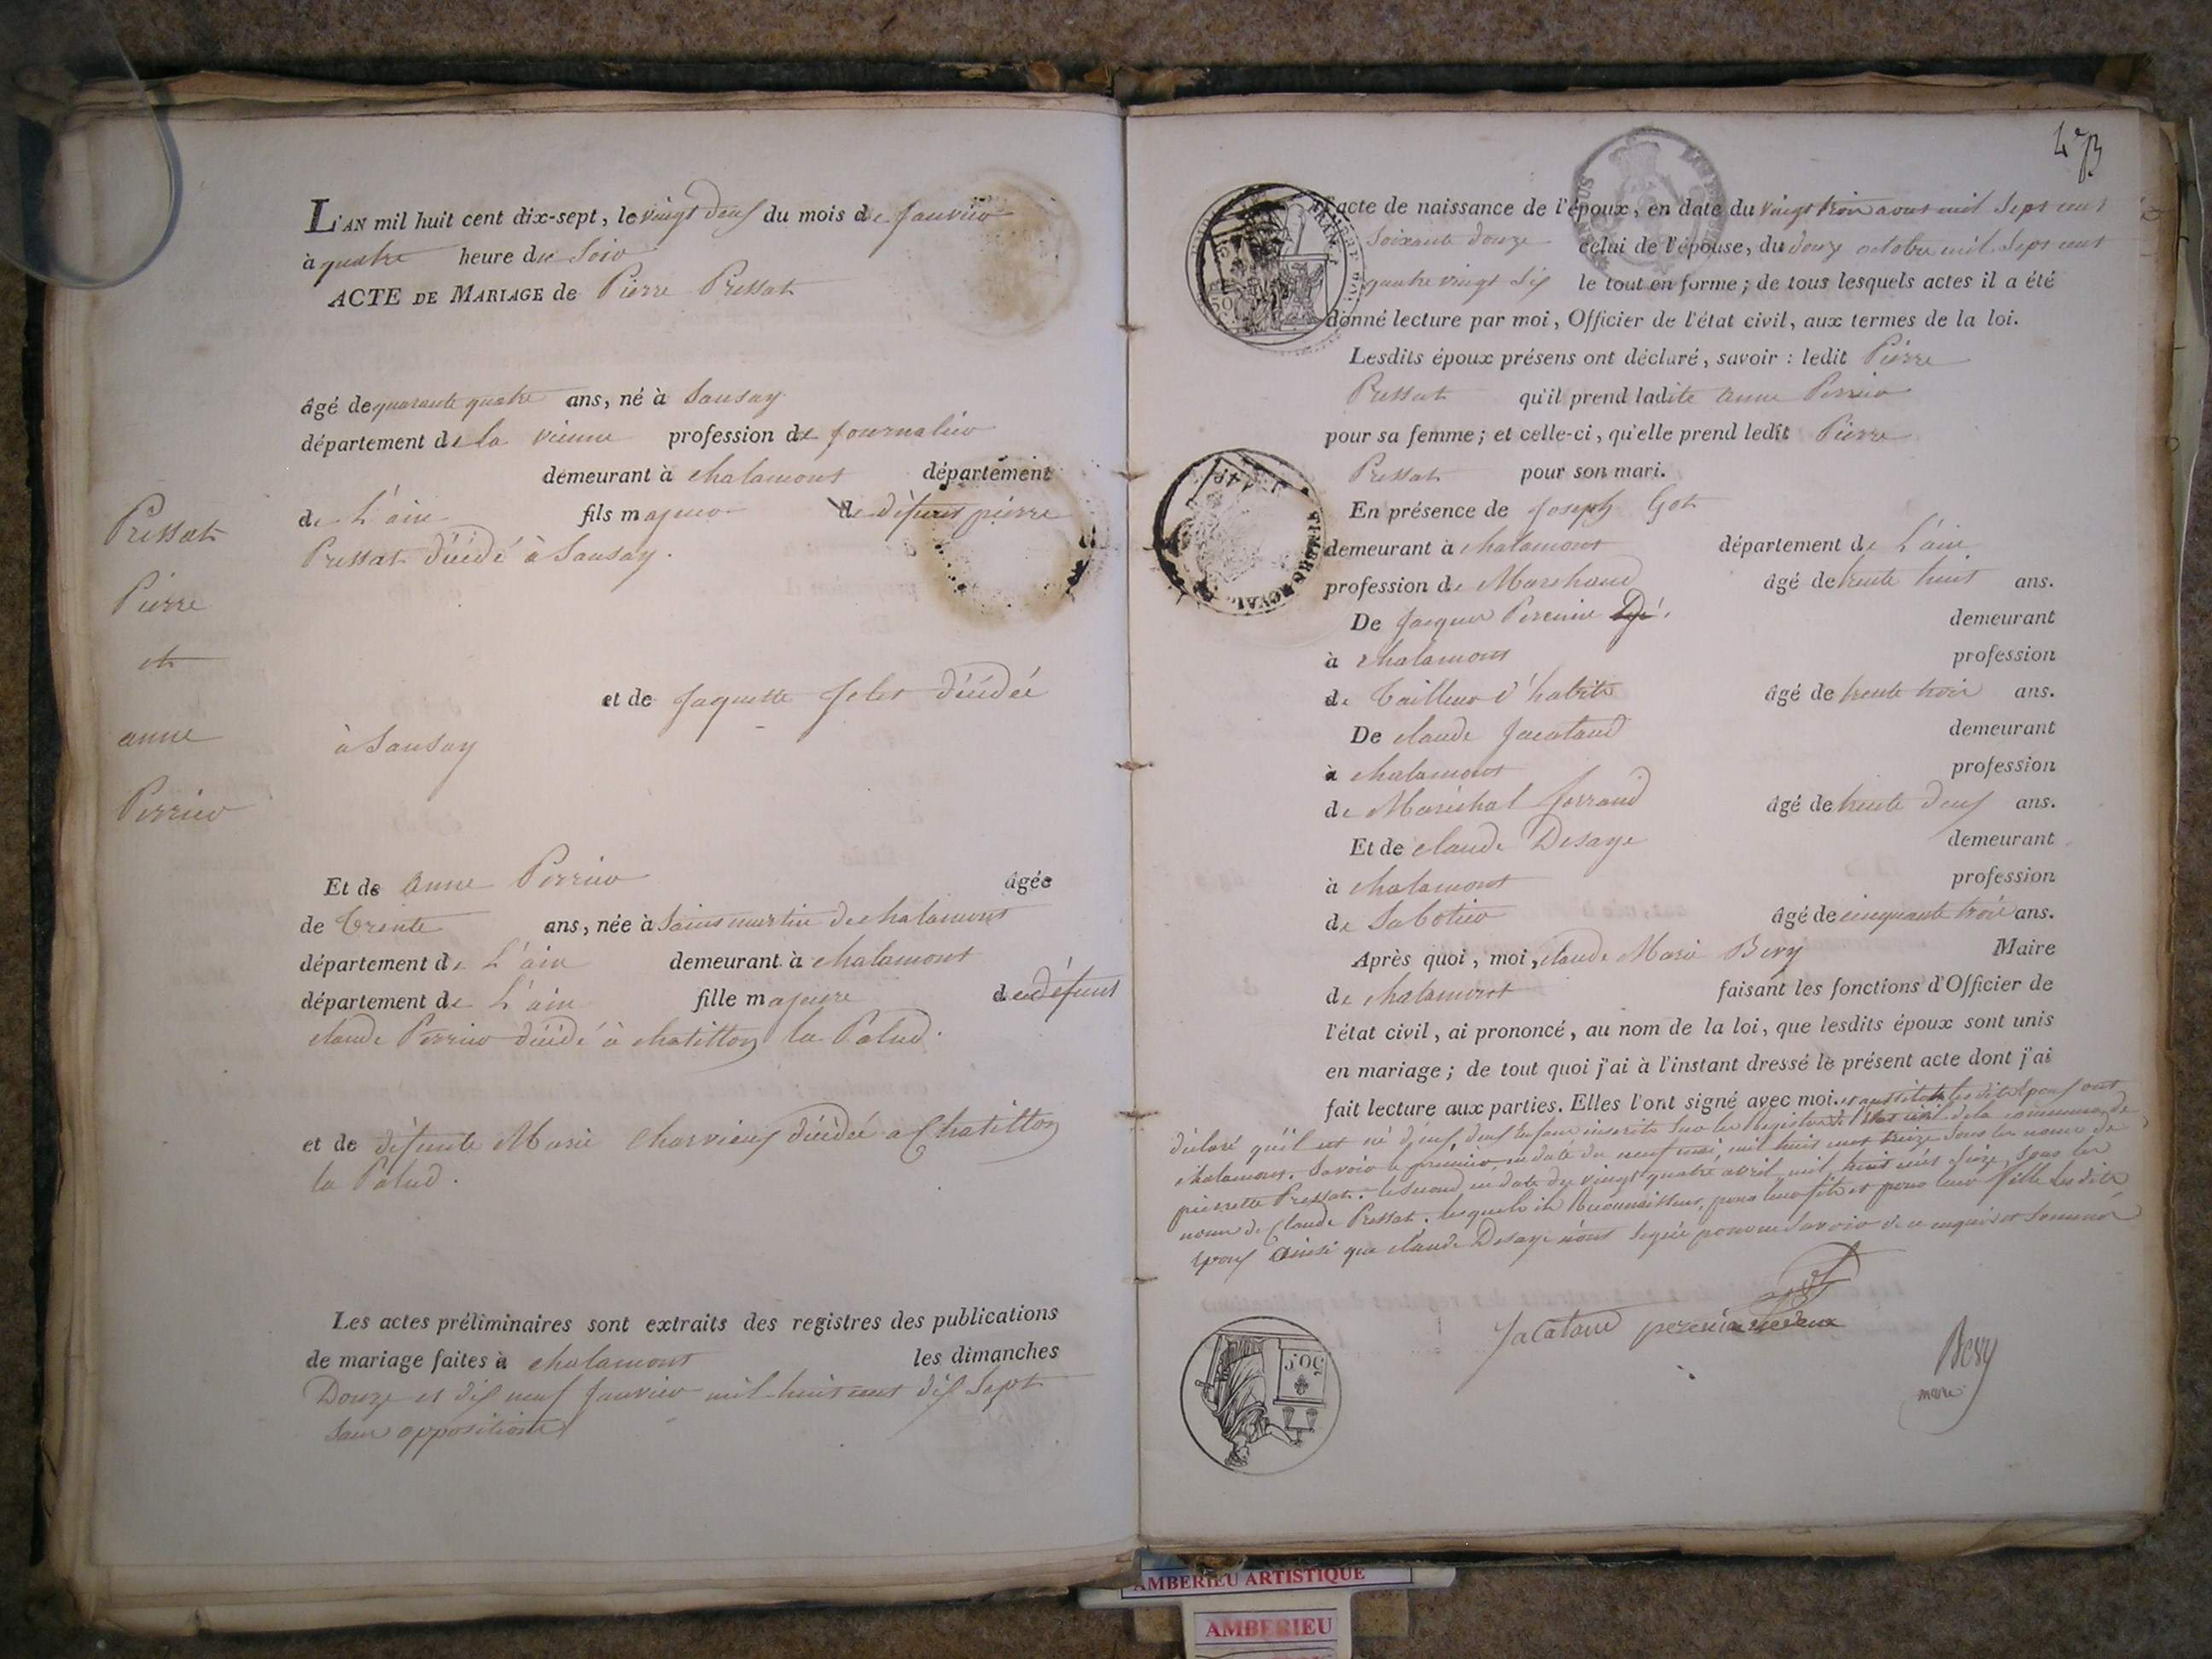 L'AN mil huit cent dix-sept, le vingt deux du mois de Janvier
à quatre heure du Soir
ACTE DE MARIAGE de Pierre Pressat
âgé de quarante quatre ans, né à Sansay
département de la vienne profession de Journalier
demeurant à chalamont département
de L'ain fils majeur de défunt pierre
Pressat décédé à Sansay.
et de Jaquette décédée
à Sansay
Pressat
Pierre
et
anne
Perrier
Et de Anne Perrier âgée
de Trente ans, née à Saint martin de chalamont
département de L'ain demeurant à chalamont
département de L'ain fille majeure de défunt
claude Perrier décédé à chatillon la Palud.
et de défunte Marie Charvieux décédée a Chatillon
la Palud.
Les actes préliminaires sont extraits des registres des publications
de mariage faites à chalamont les dimanches
Douze et dix neuf Janvier mil huit cent dix Sept
Sans opposition
4e
acte de naissance de l'époux, en date du vingt trois aout mil Sept cent
Soixante douze celui de l'épouse, du douze octobre mil Sept cent
quatre vingt Six le tout en forme; de tous lesquels actes il a été
donné lecture par moi, Officier de l'état civil, aux termes de la loi.
Lesdits époux présens ont déclaré, savoir : ledit Pierre
Pressat qu'il prend ladite anne Perrier
pour sa femme; et celle-ci, qu'elle prend ledit Pierre
Pressat pour son mari.
En présence de Joseph Got
demeurant à chalamont département de L'ain
profession de Marchand âgé de trente huit ans.
De Jacques Perenin demeurant
à chalamont profession
de Tailleur d'habits âgé de trente trois ans.
De claude Jacataud demeurant
à chalamont profession
de Maréchal ferrand âgé de trente deux ans.
Et de claude Desaye demeurant
à chalamont profession
de Sabotier âgé de cinquante trois ans.
Après quoi, moi, claude Marie Bevy Maire
de chalamont faisant les fonctions d'Officier de
l'état civil, ai prononcé, au nom de la loi, que lesdits époux sont unis
en mariage; de tout quoi j'ai à l'instant dressé le présent acte dont j'ai
fait lecture aux parties. Elles l'ont signé avec moi. et aussitot les dits Epoux ont
déclaré qu'il est né d'eux deux Enfans inscrits Sur les Registres de l'état civil de la commune de
chalamont. Savoir le premier en date du neuf mai mil huit cent treize Sous les noms de
pierrette Pressat. le Second en date du vingt quatre avril mil huit cent Seize, Sous les
noms de Claude Pressat. lesquels ils Reconnaissent pour leur fils et pour leur fille les dits
Epoux ainsi que claude Desaye n'ont Signé pour ne Savoir de ce enquis et Sommé
Got
Jacataud perenin
Bevy
maire
TIMBRE ROYAL
50 C
AMBERIEU ARTISTIQUE
AMBERIEU